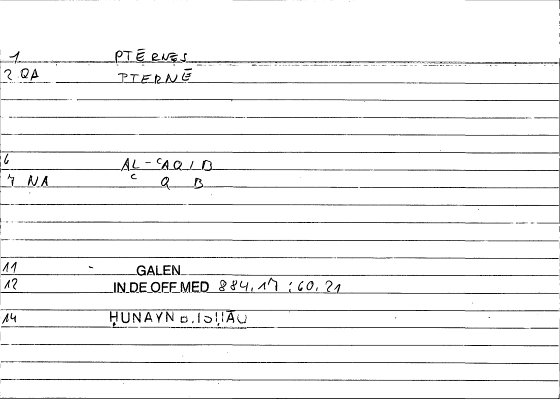 1 PTĒRNES
2 QA PTERNĒ
6 AL-ʿAQIB
7 NA ʿ Q B
11 - GALEN
12 IN DE OFF MED 884,17 : 60,21
14 ḤUNAYN